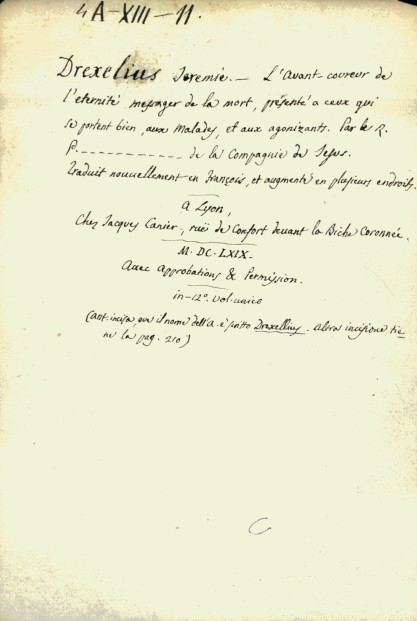 4A-XIII-11.
Drexelius Jeremie. — L'Avant-coureur de
l'eternité messager de la mort, présenté a ceux qui
se portent bien, aux Malades, et aux agonizants. Par le R.
P. ____________ de la Compagnie de Jesus.
Traduit nouvellement en François, et augmenté en plusieurs endroits.
A Lyon,
Chez Jacques Canier, ruë de Confort devant la Biche Coronnée.
M. DC. LXIX.
Avec Approbations & Permission.
in-12°. vol. unico
(Ant. incisa, ove il nome dell'A. è scritto Drexellius. Altra incisione tie-
ne la pag. 210)
C